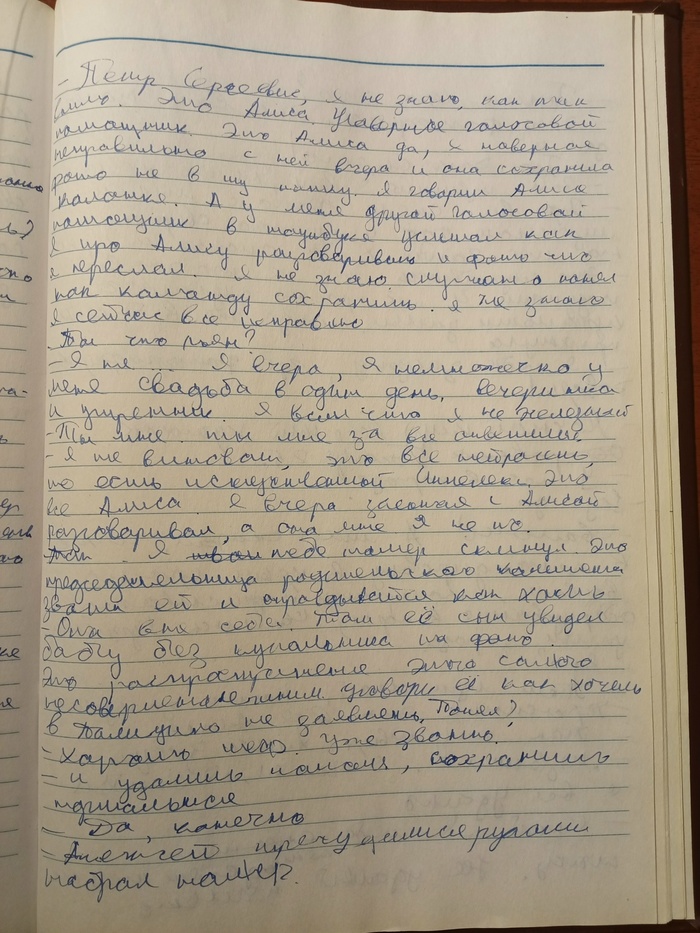 - Петр Сергеевич, я не знаю, как так
Это Алиса голосовой
помощник. Это Алиса да, я наверная
неправильно с ней вчера и она сохранила
фото не в ту папку. Я говорил Алиса
А у меня другой голосовой
помощник в ноутбуке услышал как
я про Алису разговариваю и фото что
я переслал. Я не знаю
как команду сохранить. я не знаю
я сейчас все исправлю
Ты что пьян?
- Я не ... Я вчера, я немножечко у
меня свадьба в один день, вечеринка
и утренник. Я если что я не железный
- Ты мне. ты мне за все ответишь
- Я не виноват, это все нейросеть,
то есть искусственный Это
все Алиса. Я вчера с Алисой
разговаривал, а она мне я не по.
Я тебе номер скинул. Это
председательница родительского комитета
звони ей и оправдывайся как хочешь
- Она вне себя. Там её сын увидел
бабу без купальника на фото.
Это распространение этого самого
несовершеннолетним уговори её как хочешь
в полицию не заявлять. Понял?
- Хорошо шеф. Уже звоню.
- и удалить сохранить

- Да, конечно
трясущимися руками
набрал номер.